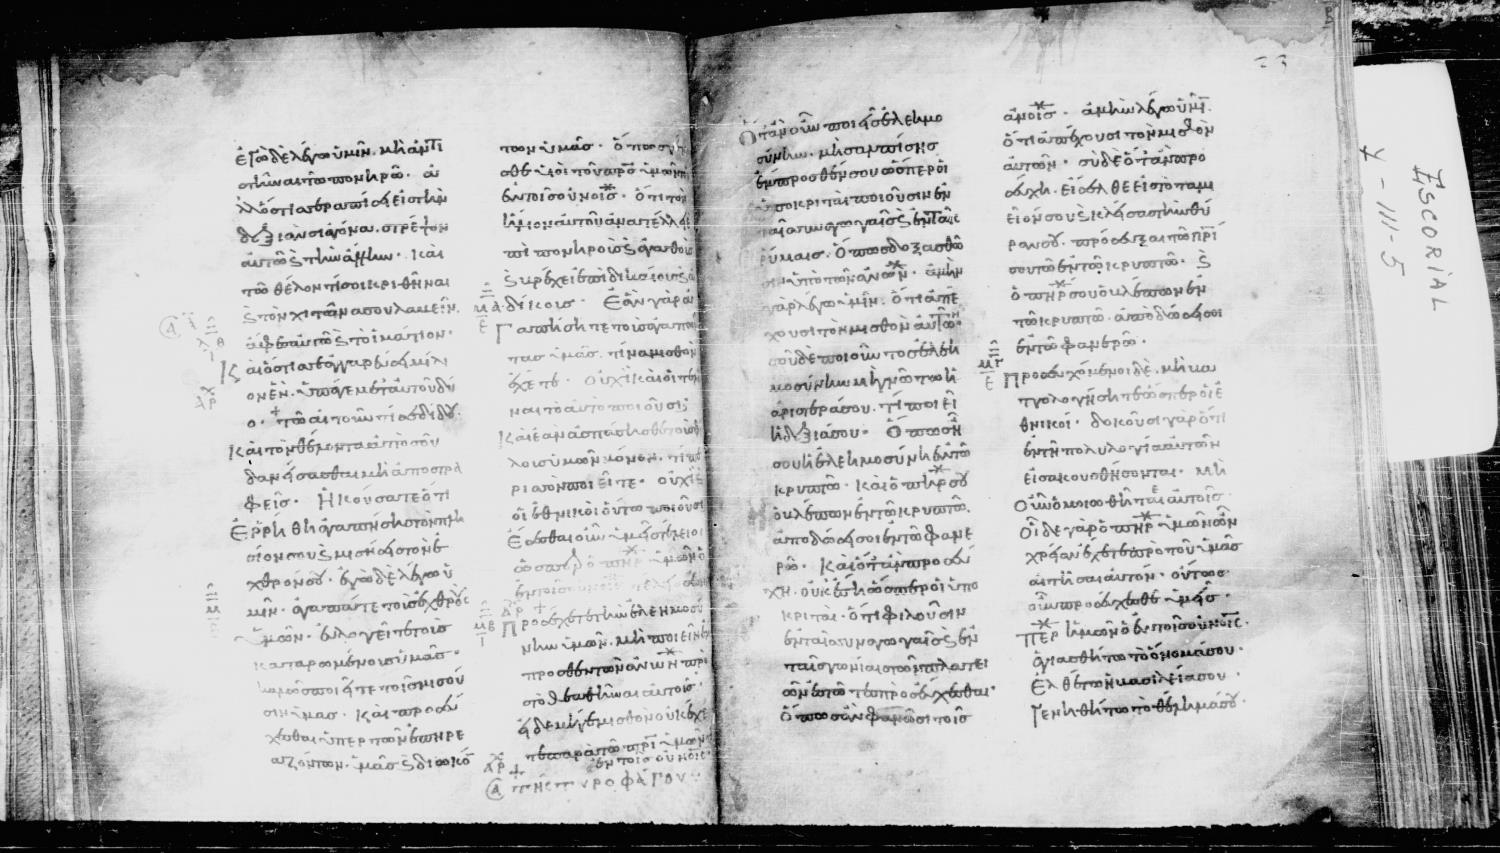 Ἐγὼ δὲ λέγω ὑμῖν. μὴ ἀντι
στῆναι τῶ πονηρῶ. ἀ
λλ' ὅστις σε ραπίσει εἰς τὴν
δεξιὰν σιαγόνα. στρέψον
αὐτῶ ϛ τὴν ἄλλην. καὶ
τῶ θέλοντί σοι κριθῆναι
ϛ τὸν χιτῶνα σου λαβεῖν.
ἄφες αὐτῶ ϛ τὸ ἱμάτιον.
Καὶ ὅστις σε ἀγγαρεύσει μίλι
ον ἕν. ὕπαγε μετ' αὐτοῦ δύ
ο. τῶ αἰτοῦντί σε δίδου.
Καὶ τὸν θέλοντα ἀπὸ σοῦ
δανείσασθαι μὴ ἀποστρα
φεῖς. Ἠκούσατε ὅτι
Ἐρρήθη ἀγαπήσεις τὸν πλη
σίον σου ϛ μισήσεις τὸν ἐ
χθρόν σου. ἐγὼ δὲ λέγω ὑ
μῖν. ἀγαπᾶτε τοὺς ἐχθροὺς
ὑμῶν. εὐλογεῖτε τοὺς
καταρωμένους ὑμᾶς.
καλῶς ποιεῖτε τοῖς μισοῦ
σιν ὑμας. Καὶ προσεύ
χεσθαι ὑπερ τῶν ἐπηρε
αζόντων. ὑμᾶς ϛ διωκό
των ὑμᾶς. ὅπως γέ
σθε υἱοὶ τοῦ πρς ὑμῶν τοῦ
ἐν τοῖς οὐνοις. ὅτι τὸν
ἥλιον αὐτοῦ ἀνατέλλει
ἐπὶ πονηροὺς ϛ ἀγαθοὺς
ϛ βρέχει ἐπὶ δικαίους ϛ
ἀδίκους. Ἐὰν γὰρ ἀ
Γαπήσητε τοὺς ἀγαπῶ
τας ὑμᾶς. τίνα μισθὸν
ἔχετε. οὐχὶ καὶ οἱ τελῶ
ναι τὸ αὐτὸ ποιοῦσι;
Καὶ ἐὰν ἀσπάσησθε τοὺς φί
λους ὑμῶν μόνον. τί πε
ρισσὸν ποιεῖτε. οὐχὶ ϛ
οἱ ἐθνικοὶ οὕτω ποιοῦσι
Ἔσεσθαι οὖν ὑμεῖς τέλειοι
ὥσπερ ὁ πηρ ὑμῶν ὁ
ἐν τοῖς οὐνοις τέλειός
Προσέχετε τὴν ἐλεημοσύ
νην ὑμῶν. μὴ ποιεῖν ἔ
προσθεν τῶν ἀνων πρὸ
στὸ θεαθῆναι αὐτοῖς.
εἰ δε μήγε μισθὸν οὐκ ἔχε
τε παρὰ τῶ πρι ὑμῶν
ἐν τοῖς οὐνοῖς
τῆς τυροφάγου
Ὅταν οὖν ποιεῖς ἐλεημο
σύνην. μὴ σαλπίσης
ἔμπροσθέν σου ὥσπερ οἱ
ὑποκριταὶ ποιοῦσιν ἐν
ταῖς συναγωγαῖς ϛ ἐν ταῖς
ρύμαις. ὅπως δοξασθῶ
σιν ὑπὸ τῶν ἀνων. ἀμὴν
γὰρ λέγω ὑμῖν. ὅτι ἀπέ
χουσι τὸν μισθὸν αὐτῶν.
σοῦ δὲ ποιοῦντος ἐλεη
μοσύνην μὴ γνώτω ἡ
ἀριστερά σου. τί ποιεῖ
ἡ δεξιά σου. Ὅπως ἦ
σου ἡ ἐλεημοσύνη ἐν τῶ
κρυπτῶ. καὶ ὁ πηρ σου
ὁ βλέπων ἐν τῶ κρυπτῶ.
ἀποδώσει σοι ἐν τῶ φανε
ρῶ. Καὶ ὅταν προσεύ
χη. οὐκ ἔση ὥσπερ οἱ ὑπο
κριταί. ὅτι φιλοῦσιν
ἐν ταῖς συναγωγαῖς ϛ ἐν
ταῖς γωνίαις τῶν πλατει
ῶν ἑστῶτες προσεύχεσθαι.
Ὅπως ἂν φανῶσι τοῖς
ἀνοις. ἀμὴν λέγω ὑμῖ.
ὅτι ἀπέχουσι τὸν μισθὸν
αὐτῶν. σὺ δὲ ὅταν προ
σεύχη. εἴσελθε εἰς τὸ ταμι
εῖόν σου ϛ κλείσας τὴν θύ
ραν σου. πρόσευξαι τῶ πρί
σου τῶ ἐν τῶ κρυπτῶ. ϛ
ὁ πηρ σου ὁ βλέπων ἐν
τῶ κρυπτῶ. ἀποδώσει σοι
ἐν τῶ φανερῶ.
Προσευχόμενοι δὲ. μὴ βα
ττολογήσητε ὥσπερ οἱ ἐ
θνικοί. δοκοῦσι γὰρ ὅτι
ἐν τῆ πολυλογία αὐτῶν
εἰσακουσθήσονται. μὴ
Οὖν ὁμοιωθῆται αὐτοῖς.
Οἶδε γὰρ ὁ πηρ ὑμῶν ὧν
χρείαν ἔχετε πρὸ τοῦ ὑμᾶς
αἰτῆσαι αὐτόν. οὕτως
οὖν προσεύχεσθε ὑμεῖς.
ΠΕΡ ἡμῶν ὁ ἐν τοῖς οὐνοῖς.
ἁγιασθήτω τὸ ὄνομά σου.
Ἐλθέτω ἡ βασιλεία σου.
Γενηθήτω τὸ θέλημά σου.
ESCORIAL
X-III-5